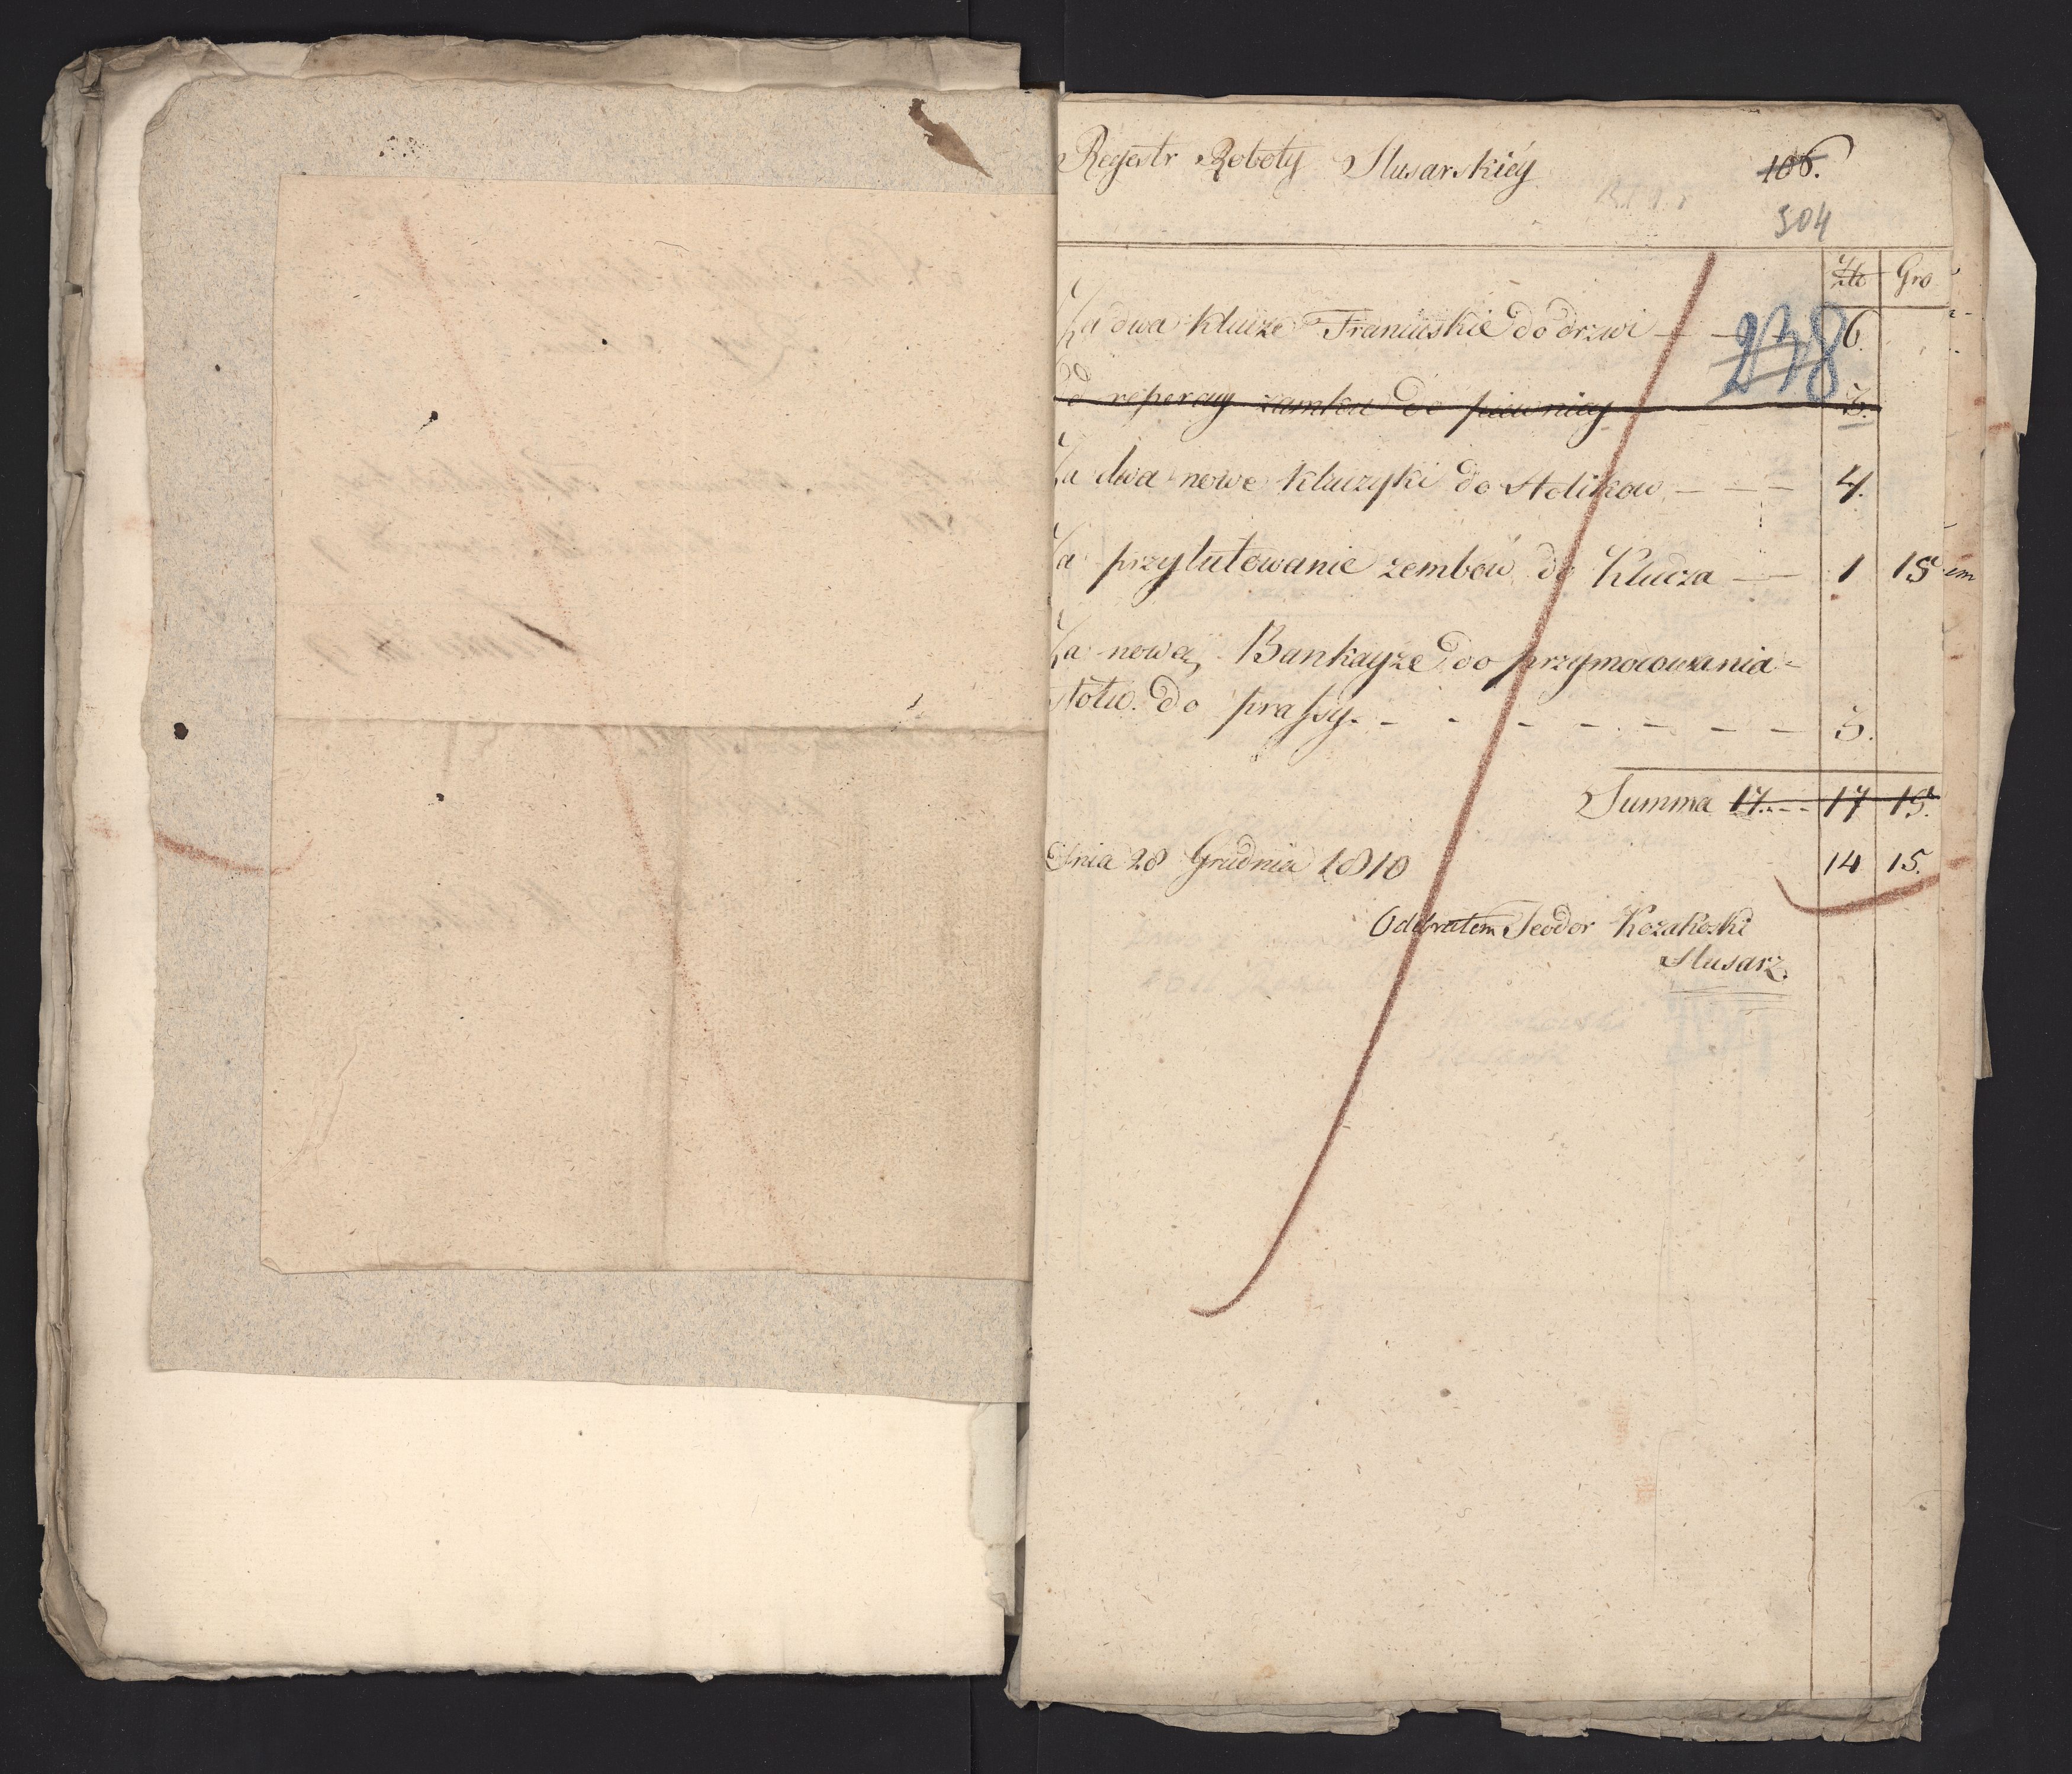 Regestr Roboty Slusarskiéy
106.
304
Zło Gro
Za dwa klucze Francuskie do drzwi — — 6.
238
Od reperacyy zamku do piwnicy — 3.
Za dwa nowe kluczyki do stolikow — — — 4.
Za przylutowanie zembow do Klucza — — 1 15
Za nową Bankayze do przymocowania
stołu do prassy. - - - - - - - 3.
Summa 17.--- 17 15.
Dnia 28 Grudnia 1810
14 15.
Odebrałem Teodor Kozakoski
Slusarz.